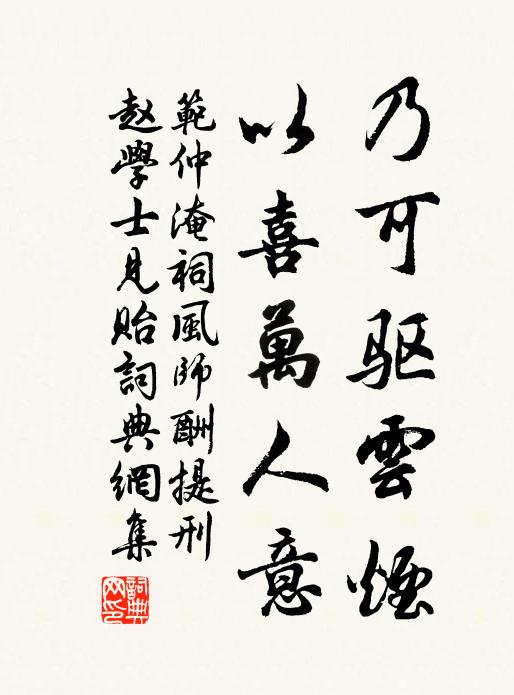 乃可驱雲煙
以喜萬人意
範仲淹祠風師酬提刑
赵學士見貽詞典網集
詞典网印